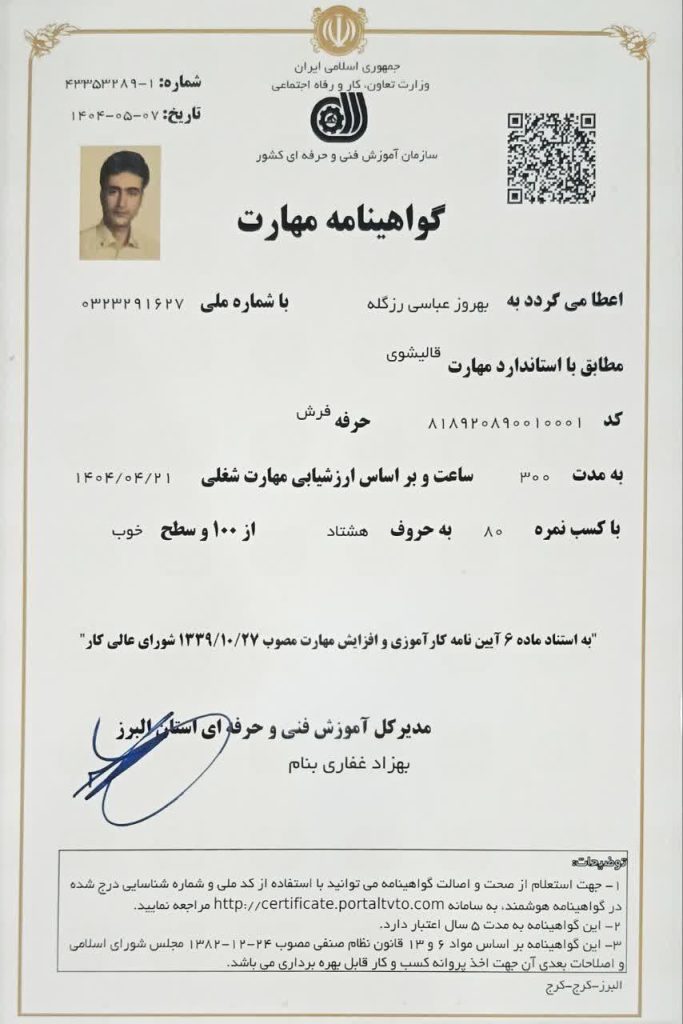 جمهوری اسلامی ایران
وزارت تعاون، کار و رفاه اجتماعی
شماره: ۱-۴۳۳۵۳۲۸۹
تاریخ: ۱۴۰۴-۰۵-۰۷
سازمان آموزش فنی و حرفه ای کشور
گواهینامه مهارت
اعطا می گردد به بهروز عباسی رزگله با شماره ملی ۰۳۲۳۲۹۱۶۲۷
مطابق با استاندارد مهارت قالیشوی
کد ۸۱۸۹۲۰۸۹۰۰۱۰۰۰۱ حرفه فرش
به مدت ۳۰۰ ساعت و بر اساس ارزشیابی مهارت شغلی ۱۴۰۴/۰۴/۲۱
با کسب نمره ۸۰ به حروف هشتاد از ۱۰۰ و سطح خوب
"به استناد ماده ۶ آیین نامه کارآموزی و افزایش مهارت مصوب ۱۳۳۹/۱۰/۲۷ شورای عالی کار"
مدیرکل آموزش فنی و حرفه ای استان البرز
بهزاد غفاری بنام
توضیحات:
۱- جهت استعلام از صحت و اصالت گواهینامه می توانید با استفاده از کد ملی و شماره شناسایی درج شده
در گواهینامه هوشمند، به سامانه http://certificate.portaltvto.com مراجعه نمایید.
۲- این گواهینامه به مدت ۵ سال اعتبار دارد.
۳- این گواهینامه بر اساس مواد ۶ و ۱۳ قانون نظام صنفی مصوب ۲۴-۱۲-۱۳۸۲ مجلس شورای اسلامی
و اصلاحات بعدی آن جهت اخذ پروانه کسب و کار قابل بهره برداری می باشد.
البرز-کرج-کرج